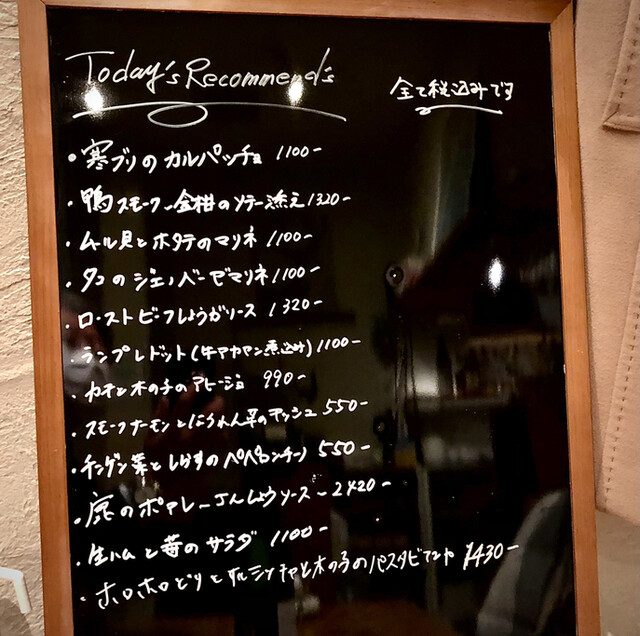 Today's Recommend's
全て税込みです
・寒ブリのカルパッチョ 1100-
・鴨スモーク 金柑のソテー添え 1320-
・ムール貝とホタテのマリネ 1100-
・タコのジェノベーゼマリネ 1100-
・ローストビーフしょうがソース 1320-
・ランプレドット(牛アカセン煮込み) 1100-
・カキと木の子のアヒージョ 990-
・スモークサーモンとほうれん草のキッシュ 550-
・チンゲン菜としらすのペペロンチーノ 550-
・鹿のポアレ さんしょうソース 2420-
・生ハムと苺のサラダ 1100-
・ホロホロどりとサルシッチャと木の子のパスタビアンカ 1430-